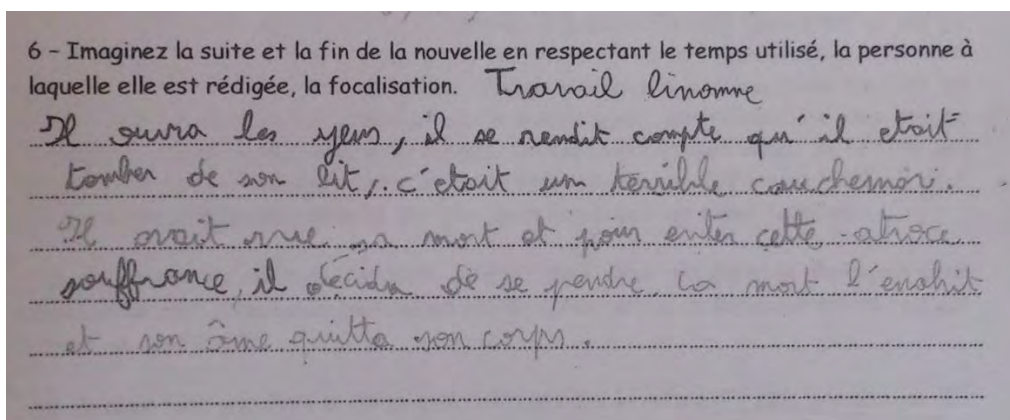 6 – Imaginez la suite et la fin de la nouvelle en respectant le temps utilisé, la personne à
laquelle elle est rédigée, la focalisation. Travail
Il ouvra les yeux, il se rendit compte qu'il etait
tomber de son lit, c'etait un terrible cauchemar.
Il avait vue sa mort et pour eviter cette atroce
souffrance, il décida de se pendre. La mort l'enahit
et son âme quitta son corps.